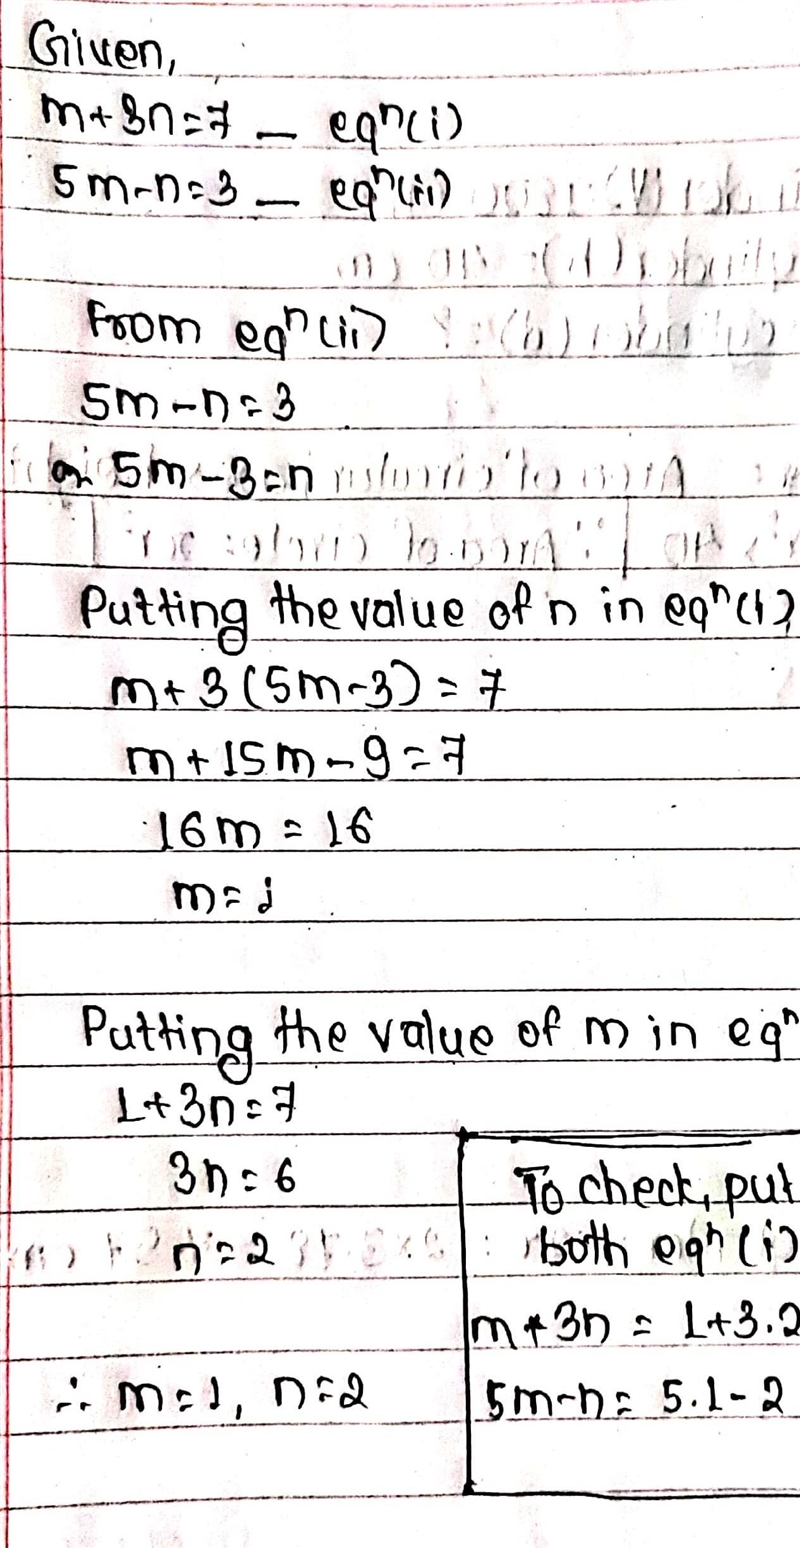 Given,
m+3n=7 — eqⁿ(i)
5m-n=3 — eqⁿ(ii)
From eqⁿ(ii)
5m-n=3
or 5m-3=n
Putting the value of n in eqⁿ(i)
m+3(5m-3)=7
m+15m-9=7
16m=16
m=1
Putting the value of m in eqⁿ
1+3n=7
3n=6
n=2
∴ m=1, n=2
To check, put
both eqⁿ(i)
m+3n = 1+3.2
5m-n= 5.1-2